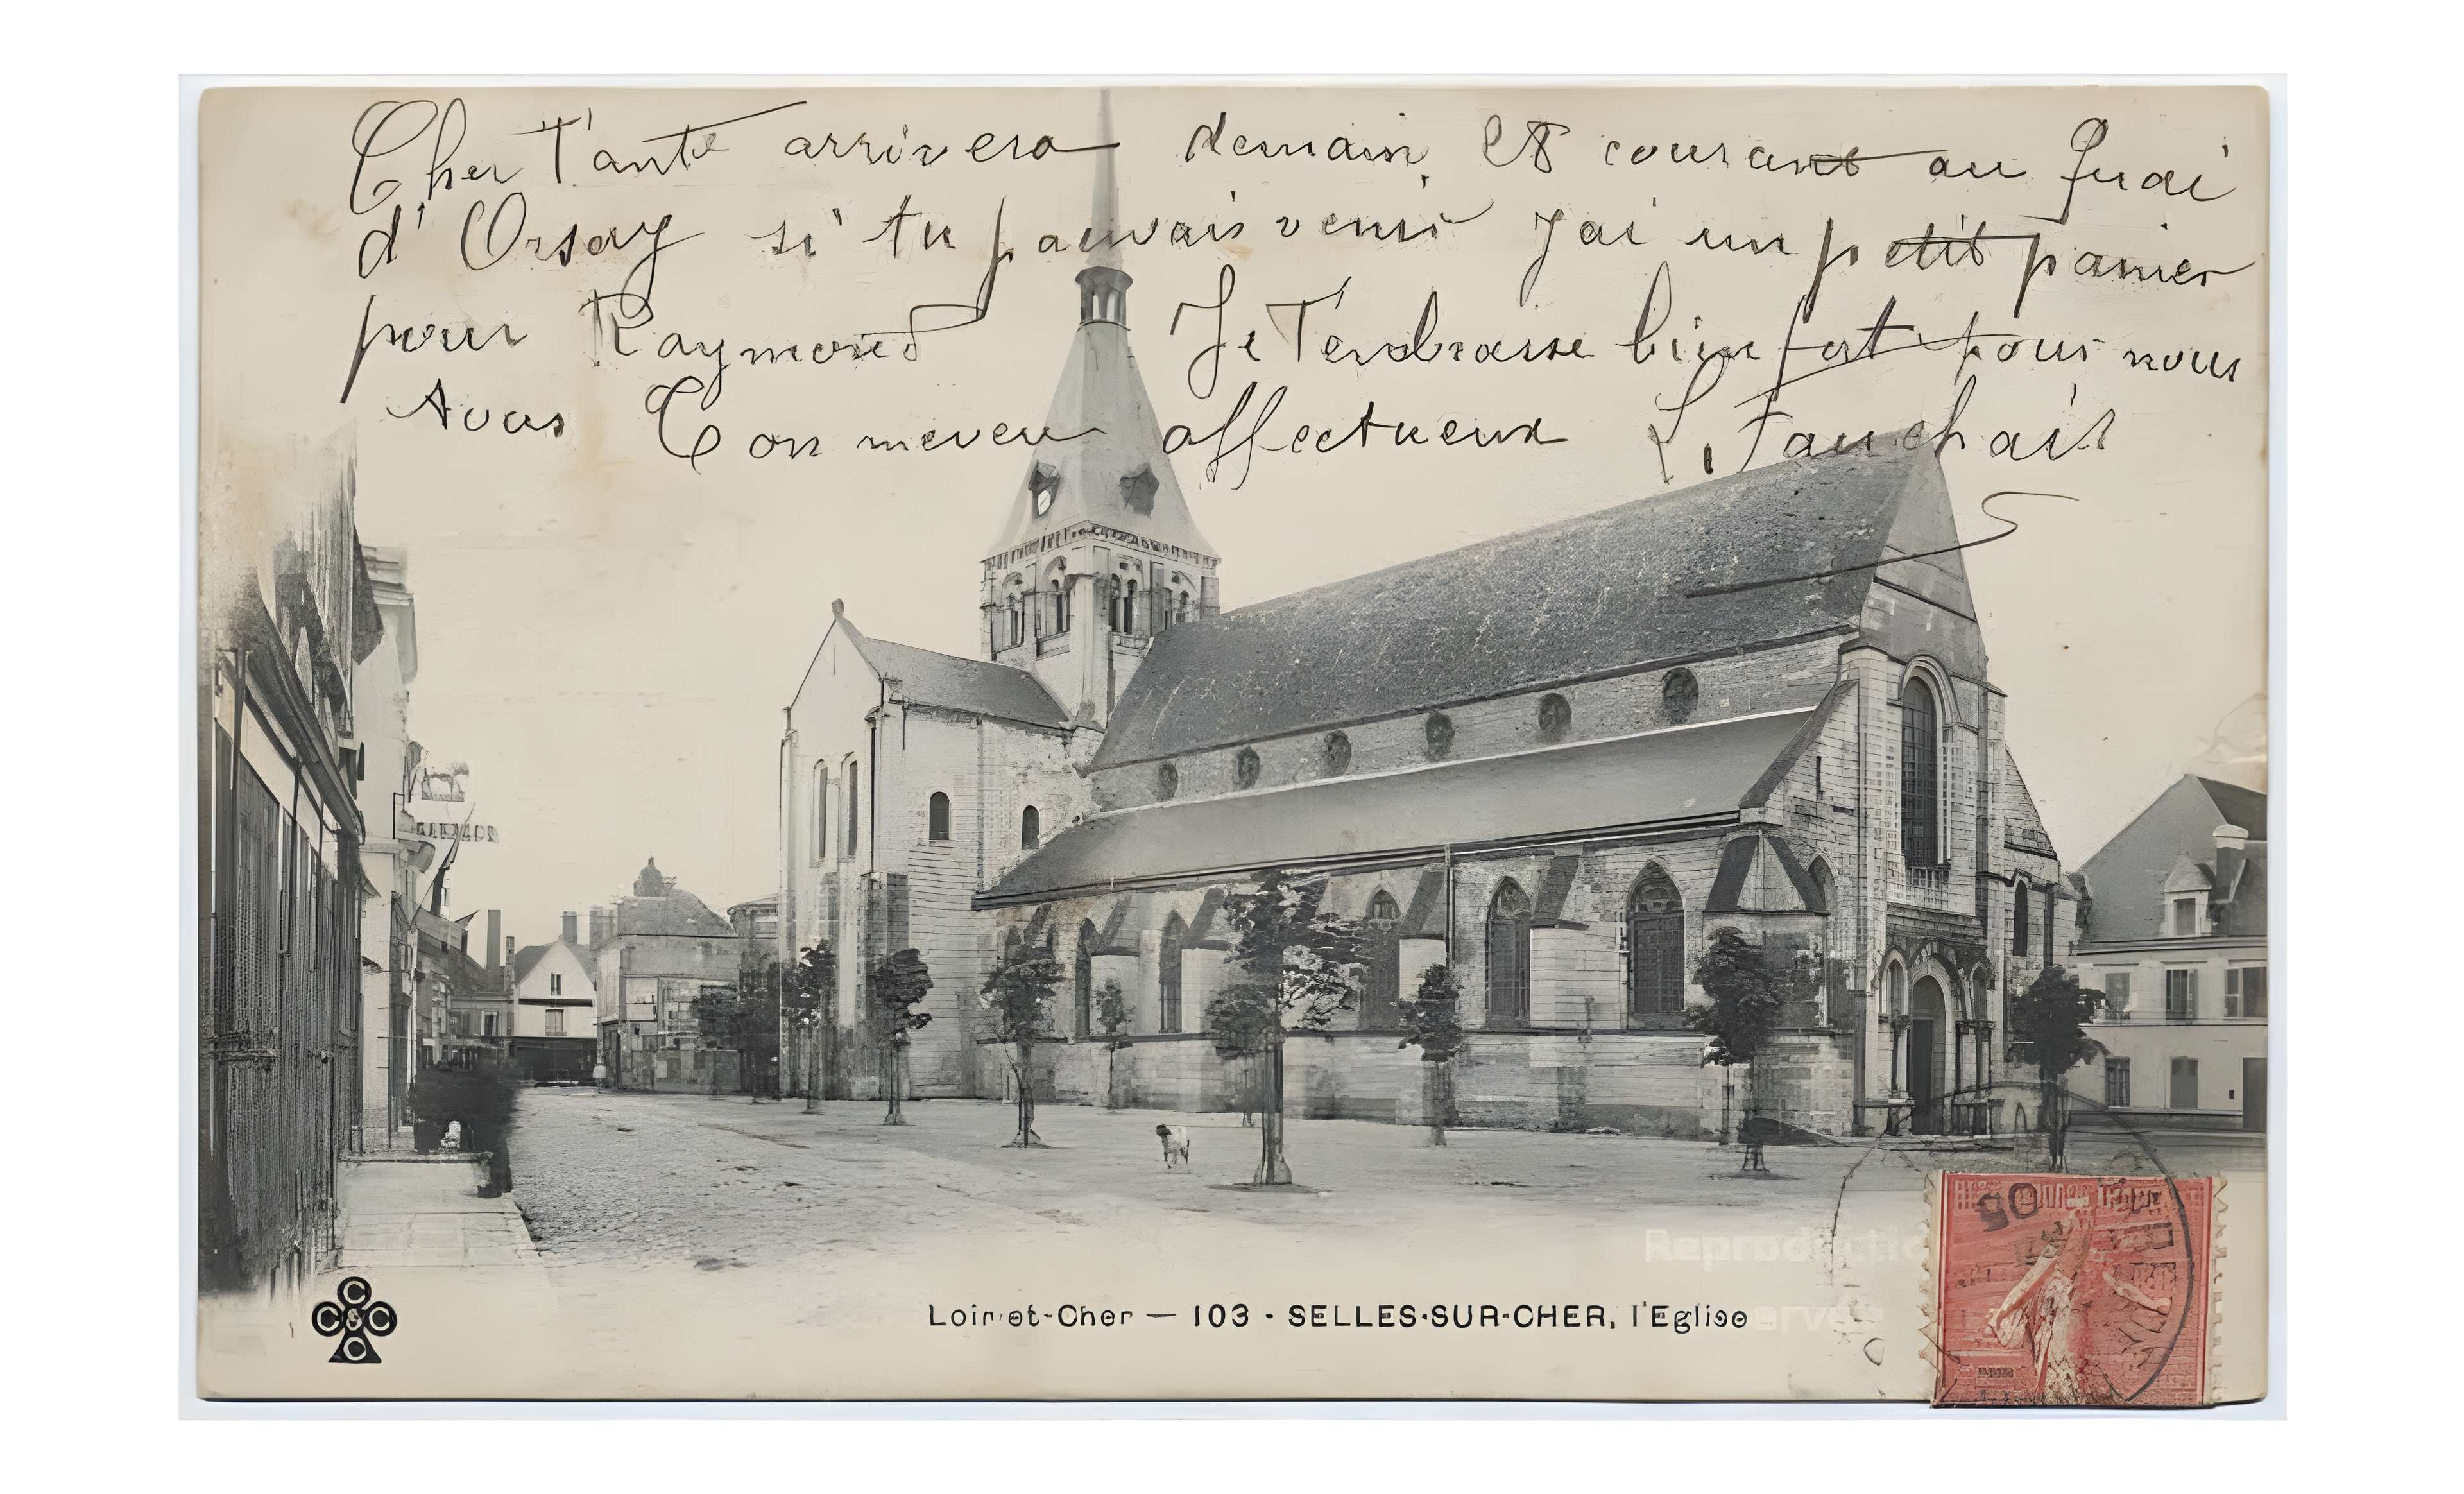 Cher Tante arrivera demain 28 courant au Quai
d'Orsay si tu pouvais venir J'ai un petit panier
pour Raymond Je T'embrasse bien fort pour nous
tous Ton neveu affectueux L. Fauchais
Loir-et-Cher — 103 - SELLES-SUR-CHER, l'Eglise
C C C C
05